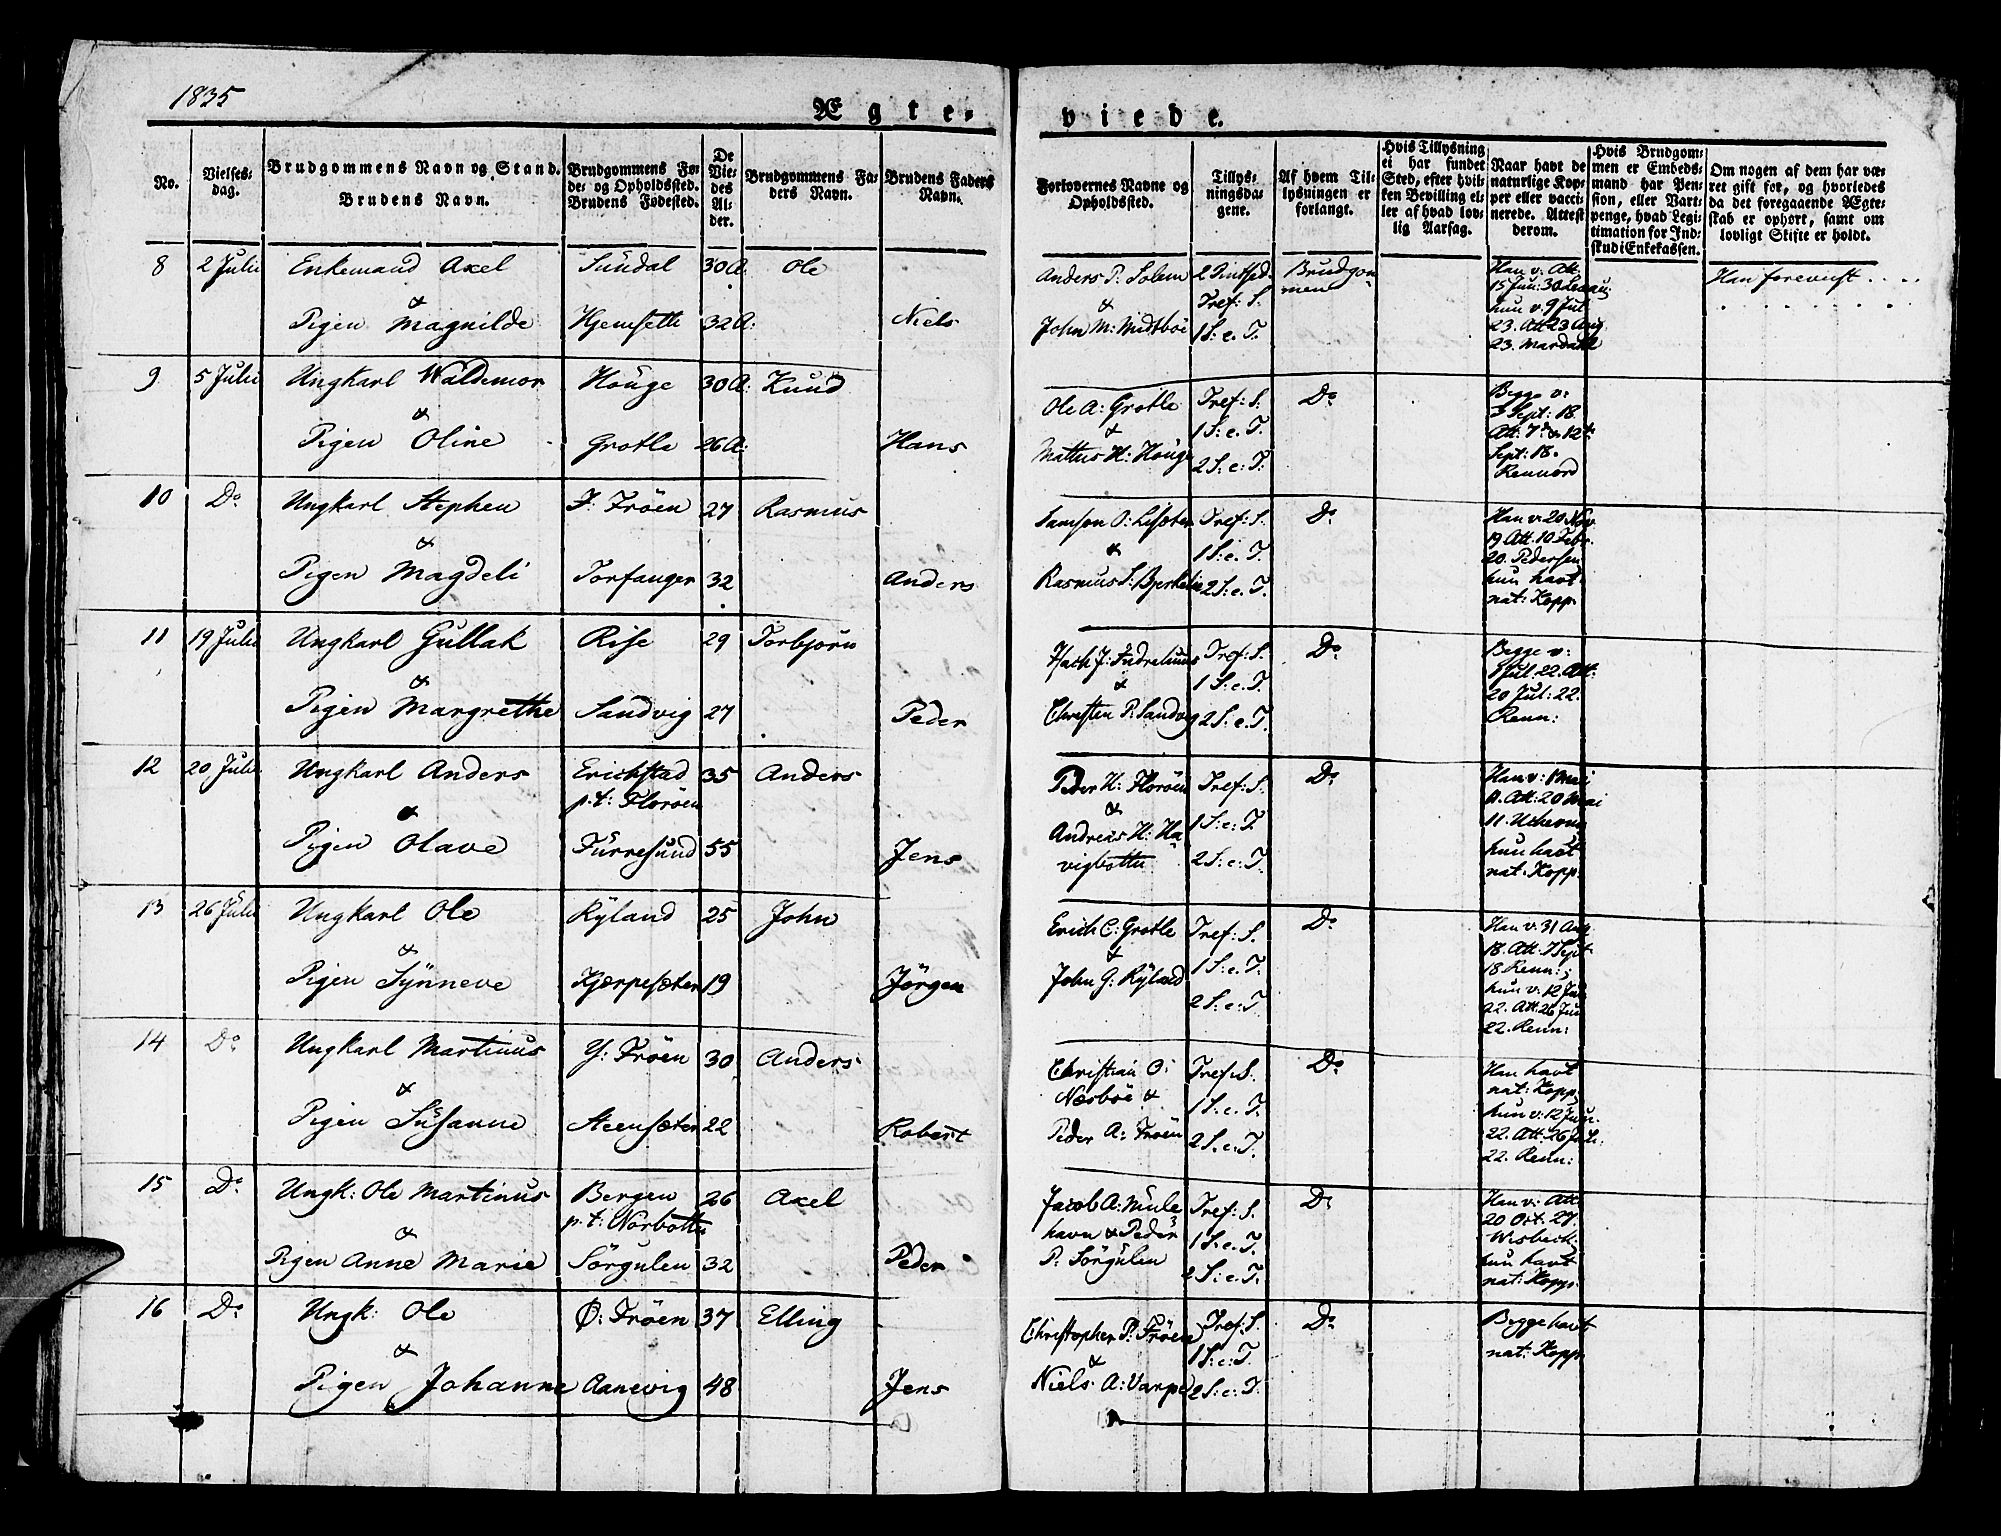 1835
Ægte-
viede.
No.
Vielses-
dag.
Brudgommens Navn og Stand.
Brudens Navn.
Brudgommens Fø-
de- og Opholdssted.
Brudens Fødested.
De
Vie-
des
Al-
der.
Brudgommens Fa-
ders Navn.
Brudens Faders
Navn.
Forlovernes Navne og
Opholdssted.
Tillys-
ningsda-
gene.
Af hvem Til-
lysningen er
forlangt.
Hvis Tillysning
ei har fundet
Sted, efter hvil-
ken Bevilling el-
ler af hvad lov-
lig Aarsag.
Naar havt de
naturlige Kop-
per eller vacci-
nerede. Attest
derom.
Hvis Brudgom-
men er Embeds-
mand har Pen-
sion, eller Vart-
penge, hvad Legi-
timation for Ind-
skud i Enkekassen.
Om nogen af dem har væ-
ret gift før, og hvorledes
da det foregaaende Ægte-
skab er ophørt, samt om
lovligt Skifte er holdt.
8 2 Julii Enkemand Axel Sundal 30 A: Ole
&
Pigen Magnilde Hjemsetti 32 A: Niels
Anders P. Solem
&
John M: Midtböe
Tref: S.
1 S: e. T.
Brudgom-
men
Han v: Att.
hun v: 9 Jul
23. Att 23 Aug
23. Mardahl
Han forevist
9 5 Julii Ungkarl Waldemor Houge 30 A: Knud
&
Pigen Oline Grotle 26 A: Hans
Ole A: Grotle
&
Mattus H: Houge
Tref: S.
1 S: e. T.
2 S: e: T.
Do
Begge v:
3 Sept: 18.
Att: 7de & 12te
Sept: 18.
Rennord
10 Do Ungkarl Stephen Y. Fröen 27 Rasmus
&
Pigen Magdeli Torfanger 32 Anders
Samson O: Lisæter
&
Rasmus S: Bjerkelie
Tref: S.
1 S: e. T.
2 S: e. T.
Do
Han v: 20 Nov
19 Att. 10 Febr.
20. Pedersen
hun havt
nat: Kopp.
11 19 Julii Ungkarl Gullak Rise 29 Torbjörn
&
Pigen Margrethe Sandvig 27 Peder
&
Christen P: Sandvig
Tref: S.
1 S: e. T.
2 S: e. T.
Do
Begge v:
1 Jul. 22. Att.
20 Jul: 22.
Renn:
12 20 Julii Ungkarl Anders Erichstad 35 Anders
p.t: Floröen
&
Pigen Olave Furresund 55 Jens
Peder H: Floröen
&
Andreas H: Ha-
vigbotten
Tref: S.
1 S: e: T.
2 S: e: T.
Do
Han v: 1 Mai
11. Att: 20 Mai
11.
hun havt
nat. Kopp.
13 26 Julii Ungkarl Ole Ryland 25 John
&
Pigen Synneve Kjerpesæter 19 Jörgen
Erich C: Grotle
&
John G: Ryland
Tref: S.
1 S: e. T.
2 S: e: T.
Do
Han v: 31 Aug
18. Att: 7 Sept
18 Renn:;
hun v: 12 Jun
22. Att: 26 Jun
22. Renn:
14 Do Ungkarl Martinus Y: Fröen 30 Anders
&
Pigen Susanne Steensæter 22 Robert
Christian O:
Næsböe &
Peder A: Fröen
Tref: S.
1 S. e. T.
2 S. e. T.
Do
Han havt
nat: Kopp.
hun v: 12 Juni.
22. Att: 26 Juli:
22. Renn:
15 Do Ungk: Ole Martinus Bergen 26 Axel
p.t: Norbotten
&
Pigen Anne Marie Sörgulen 32 Peder
Jacob A: Mule
havn & Peder
P. Sörgulen
Tref: S.
1 S: e. T.
2 S: e. T.
Do
Han v: Att
20 Oct: 27.
Wisbech.
hun havt
nat: Kopp.
16 Do Ungk: Ole Ø: Fröen 37 Elling
&
Pigen Johanne Aanevig 48 Jens
Christopher P: Fröen
&
Niels A: Varpe
Tref: S.
1 S: e: T.
2 S: e: T.
Do
Begge havt
nat: Kopp.